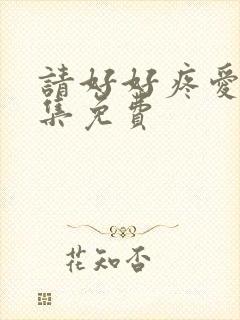 請好好疼愛
集免費
花知否